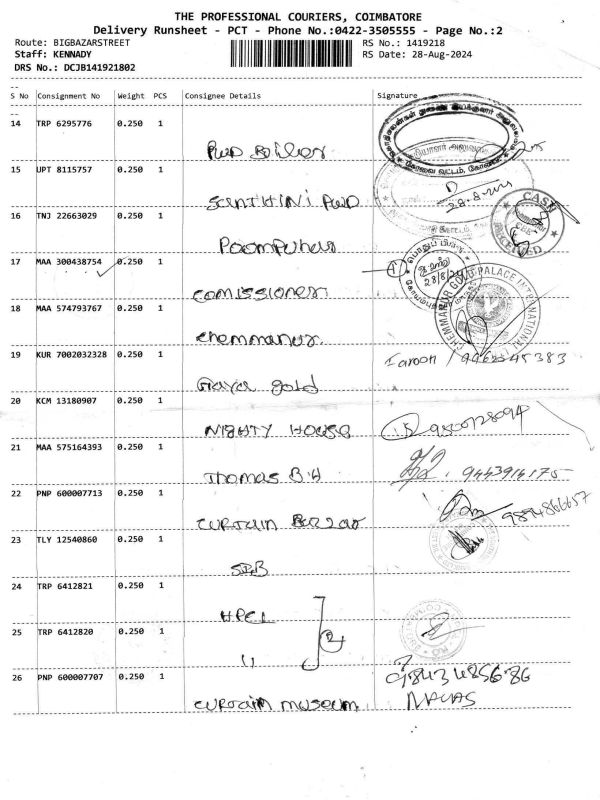 THE PROFESSIONAL COURIERS, COIMBATORE
Delivery Runsheet - PCT - Phone No.:0422-3505555 - Page No.:2
Route: BIGBAZARSTREET RS No.: 1419218
Staff: KENNADY RS Date: 28-Aug-2024
DRS No.: DCJB141921802
--
S No Consignment No Weight PCS Consignee Details Signature
--
14 TRP 6295776 0.250 1
PWD Boiler
15 UPT 8115757 0.250 1
SCENTHINI PWD
28-8-2024
16 TNJ 22663029 0.250 1
Poompuhar
CASH
RECEIVED
17 MAA 300438754 0.250 1
comissioner
28/8/24
18 MAA 574793767 0.250 1
chemmanur
CHEMMANUR GOLD PALACE INTERNATIONAL
19 KUR 7002032328 0.250 1
Gaya gold
20 KCM 13180907 0.250 1
NIGHTY HOUSE
9500728094
21 MAA 575164393 0.250 1
Thomas B.H
9443914175
22 PNP 600007713 0.250 1
curtain Bazzar
9894866657
23 TLY 12540860 0.250 1
SRB
24 TRP 6412821 0.250 1
HPCL
25 TRP 6412820 0.250 1
11
2
26 PNP 600007707 0.250 1
curtain museum
9843485686